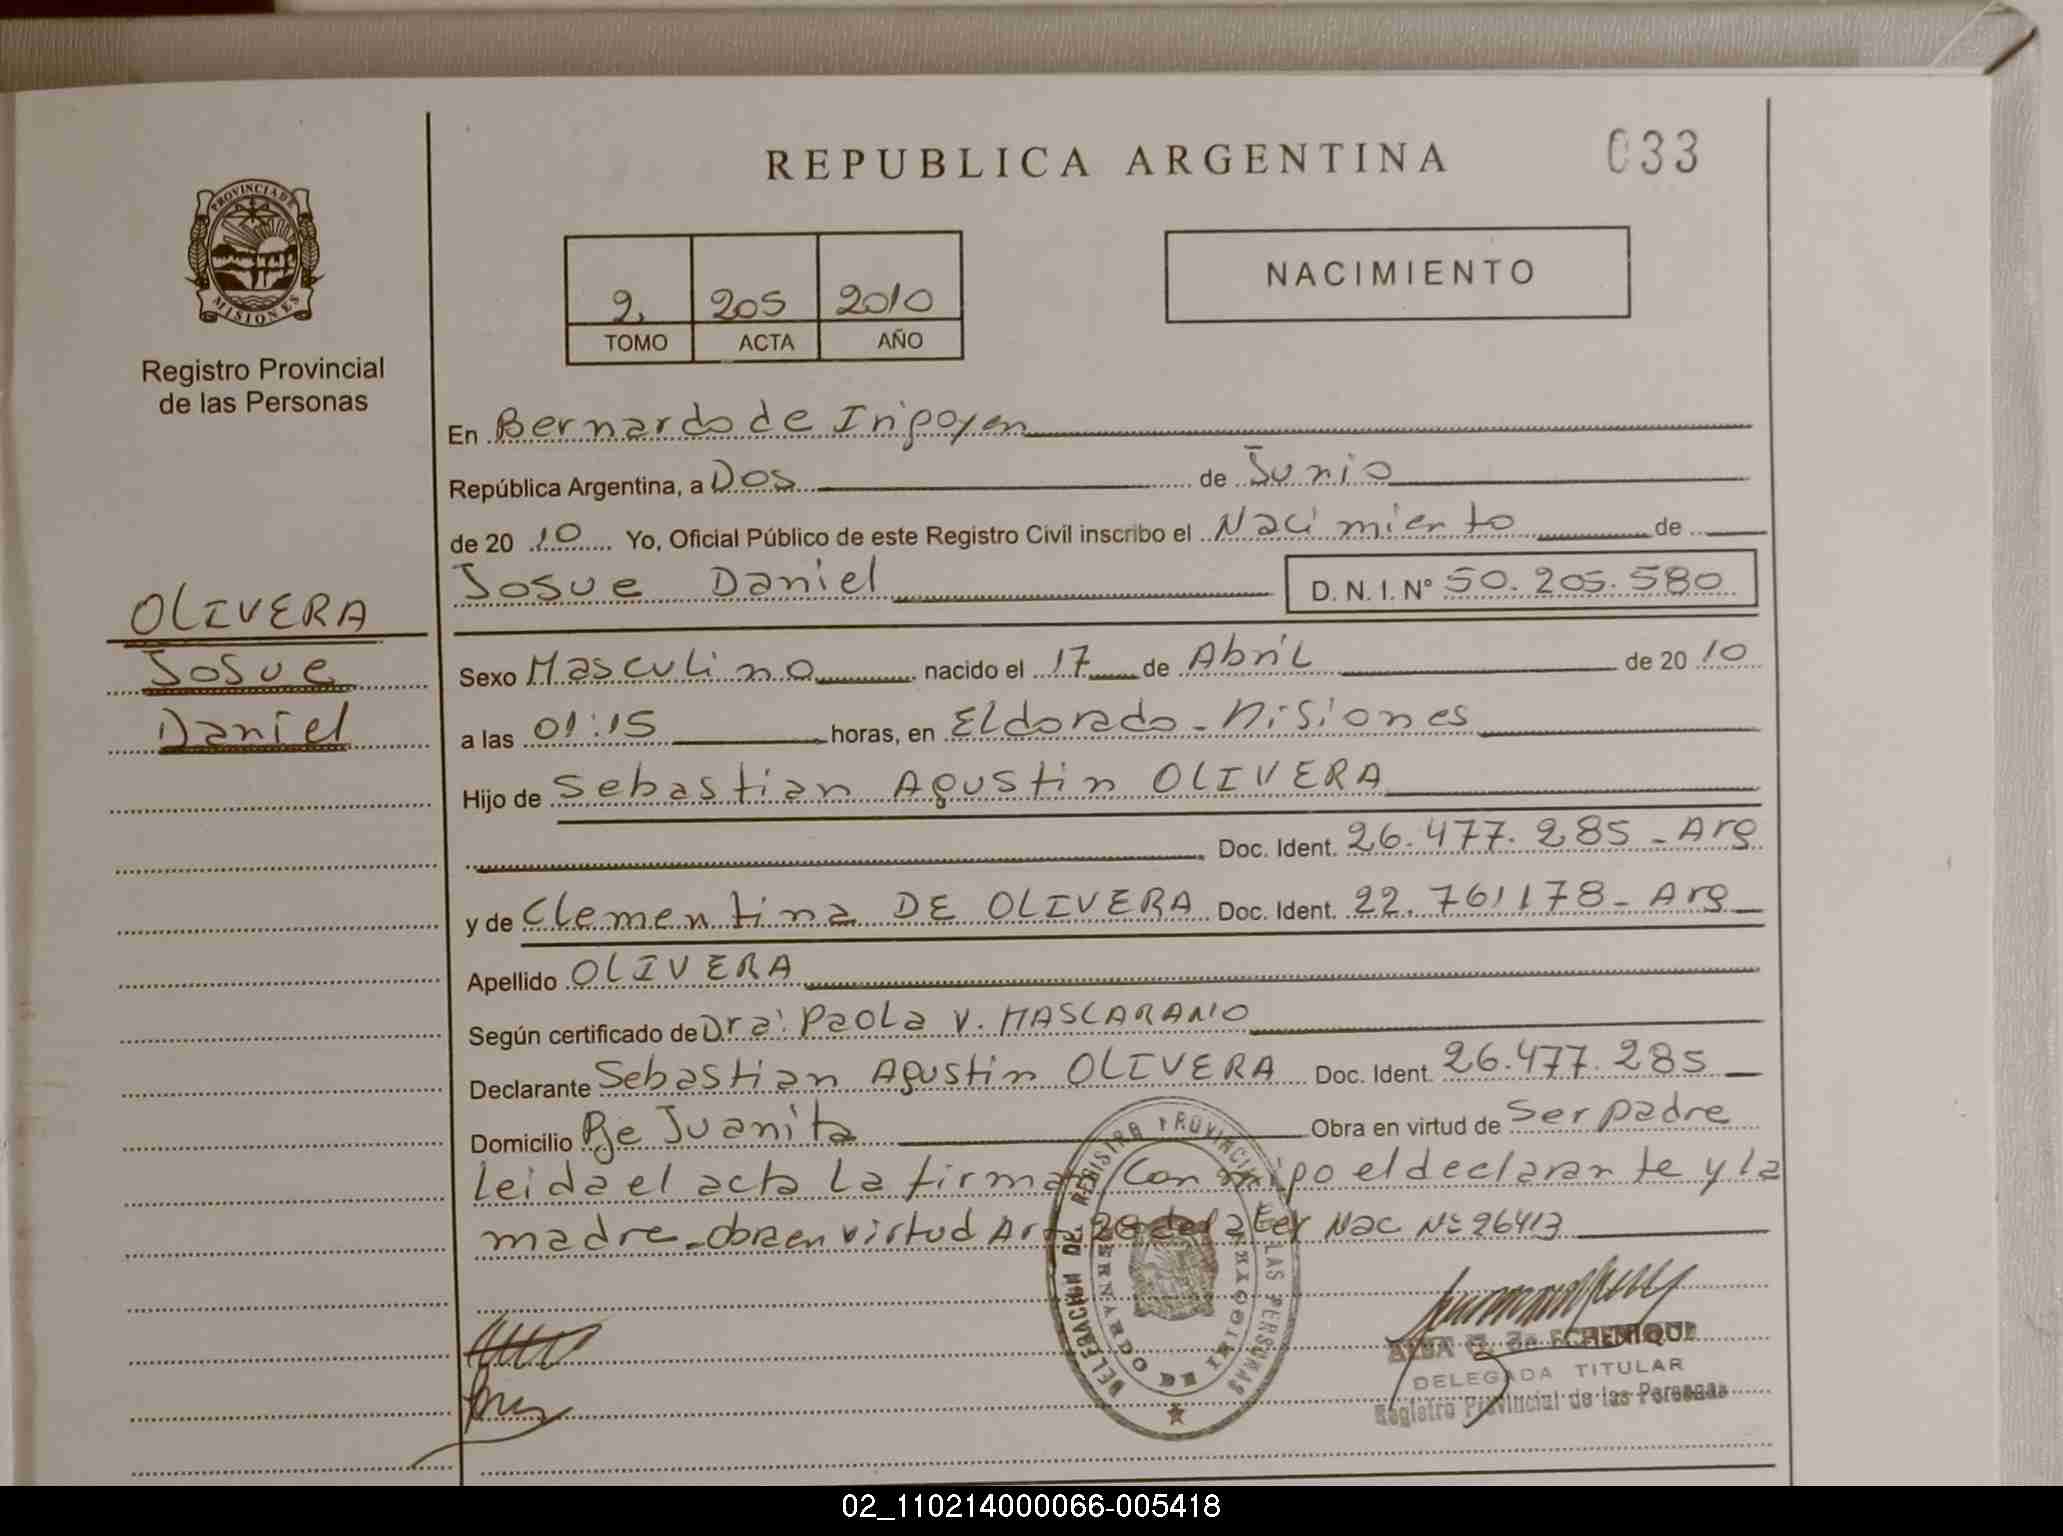 REPUBLICA ARGENTINA
033
PROVINCIA DE
MISIONES
Registro Provincial
de las Personas
2. 205 2010
TOMO ACTA AÑO
NACIMIENTO
En Bernardo de Irigoyen
República Argentina, a Dos de Junio
de 20 10 Yo, Oficial Público de este Registro Civil inscribo el Nacimiento de
Josue Daniel D. N. I. N° 50.205.580
OLIVERA
Josue
Daniel
Sexo Masculino nacido el 17 de Abril de 20 10
a las 01:15 horas, en Eldorado - Misiones
Hijo de Sebastian Agustin OLIVERA
Doc. Ident. 26.477.285 - Arg
y de Clementina DE OLIVERA Doc. Ident. 22.761178 - Arg
Apellido OLIVERA
Según certificado de Dra: Paola V. MASCARAÑO
Declarante Sebastian Agustin OLIVERA Doc. Ident. 26.477.285
Domicilio Pje Juanita Obra en virtud de Ser padre
Leida el acta La firman Conmigo el declarante y la
madre - obra en virtud Art 28 de la Ley Nac N° 26413
DELEGACION DEL REGISTRO PROVINCIAL DE LAS PERSONAS
BERNARDO DE IRIGOYEN
ECHENIQUE
DELEGADA TITULAR
Registro Provincial de las Personas
02_110214000066-005418